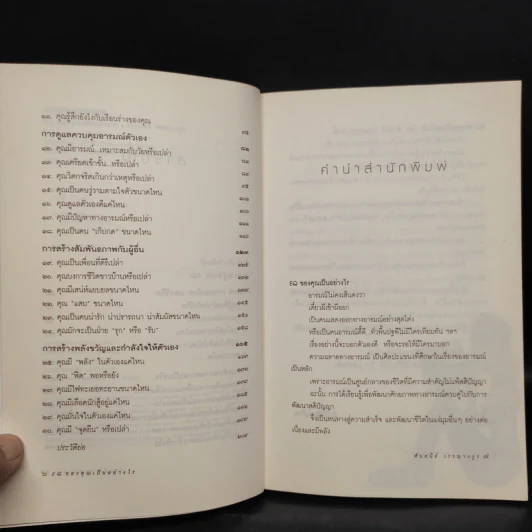 ๑๑. คุณรู้สึกยังไงกับเรือนร่างของคุณ
การดูแลควบคุมอารมณ์ตัวเอง
๑๒. คุณมีอารมณ์...เหมาะสมกับวัยหรือเปล่า
๑๓. คุณเครียดเข้าขั้น...หรือเปล่า
๑๔. คุณวิตกจริตเกินกว่าเหตุหรือเปล่า
๑๕. คุณเป็นคนวู่วามตามใจตัวขนาดไหน
๑๖. คุณดูแลตัวเองดีแค่ไหน
๑๗. คุณมีปัญหาทางอารมณ์หรือเปล่า
๑๘. คุณเป็นคน "เก็บกด" ขนาดไหน
การสร้างสัมพันธภาพกับผู้อื่น
๑๙. คุณเป็นเพื่อนที่ดีรึเปล่า
๒๐. คุณบงการชีวิตชาวบ้านหรือเปล่า
๒๑. คุณมีเสน่ห์แบบยลขนาดไหน
๒๒. คุณ "แสบ" ขนาดไหน
๒๓. คุณเป็นคนน่ารัก น่าปรารถนา น่าสัมผัสขนาดไหน
๒๔. คุณมักจะเป็นฝ่าย "รุก" หรือ "รับ"
การสร้างพลังขวัญและกำลังใจให้ตัวเอง
๒๕. คุณมี "พลัง" ในตัวเองแค่ไหน
๒๖. คุณ "ฟิต" พอหรือยัง
๒๗. คุณมีไฟทะเยอทะยานขนาดไหน
๒๘. คุณมีเลือดนักสู้อยู่แค่ไหน
๒๙. คุณมั่นใจในตัวเองแค่ไหน
๓๐. คุณมี "จุดยืน" หรือเปล่า
ประวัติย่อ
๖ EQ ของคุณเป็นอย่างไร
คำนำสำนักพิมพ์
EQ ของคุณเป็นอย่างไร
อารมณ์ไม่คงเส้นคงวา
เดี๋ยวดีเข้าน้อยก
เป็นคนแสดงออกทางอารมณ์อย่างสุดโต่ง
หรือเป็นคนอารมณ์ดี๊ดี ทั่วพื้นปฐพีไม่มีใครเทียมทัน ฯลฯ
เรื่องอย่างนี้จะบอกตัวเองดี หรือจะรอให้มีใครมาบอก
ความฉลาดทางอารมณ์ เป็นศิลปะแรงที่ศึกษาในเรื่องของอารมณ์
เป็นหลัก
เพราะอารมณ์เป็นศูนย์กลางของชีวิตที่มีความสำคัญไม่แพ้สติปัญญา
ฉะนั้น การได้เรียนรู้เพื่อพัฒนาศักยภาพทางอารมณ์ควบคู่ไปกับการ
พัฒนาสติปัญญา
จึงเป็นหนทางสู่ความสำเร็จ และพัฒนาชีวิตในแง่มุมอื่นๆ อย่างต่อ
เนื่องและมีพลัง